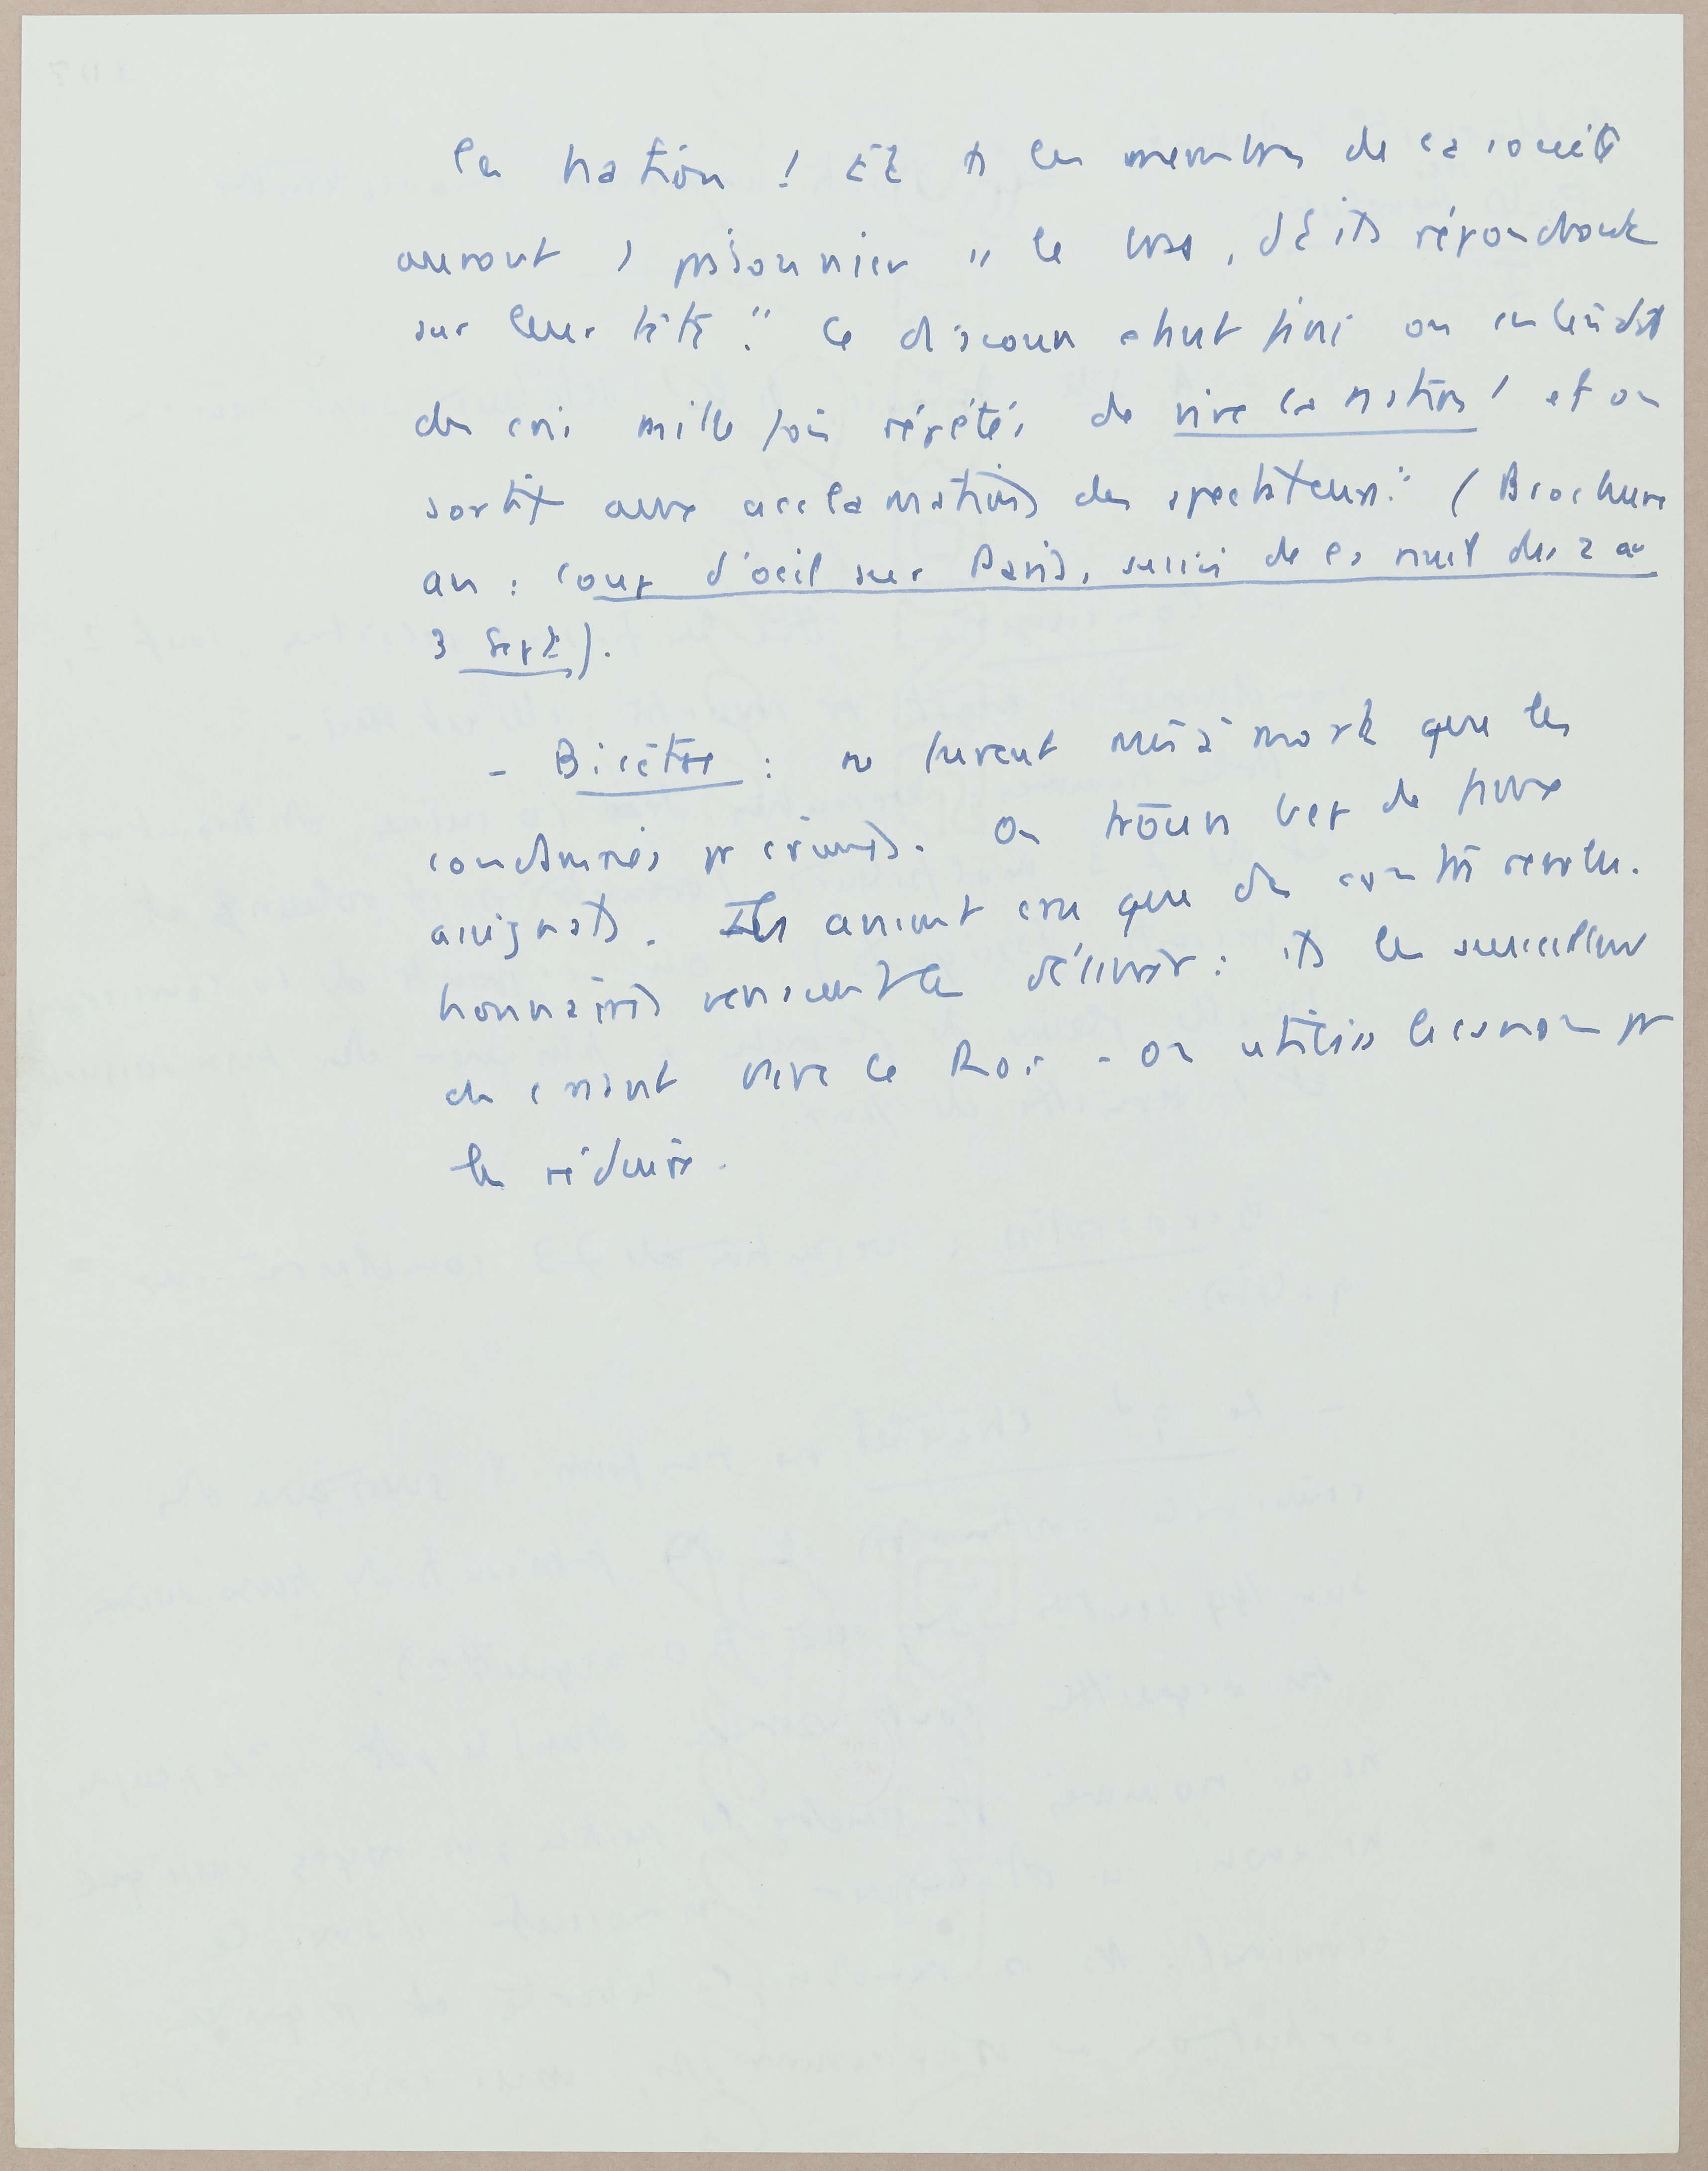 la nation ! Et ts les membres de la société
auront 1 prisonnier ss le bras, dt ils répondront
sur leur tête." Ce discours étant fini on entendit
des cris mille fois répétés de vive la nation ! et on
sortit aux acclamations des spectateurs." (Brochure
an : Coup d'oeil sur Paris, suivi de la nuit du 2 au
3 Sept).
- Bicêtre : ne furent mis à mort que les
condamnés pr crimes. On trouva bcp de faux
assignats. Ils avaient cru que des contre révolu.
tionnaires venaient les délivrer : ils les accueillirent
en criant vive le Roi - On utilisa le canon pr
les réduire.